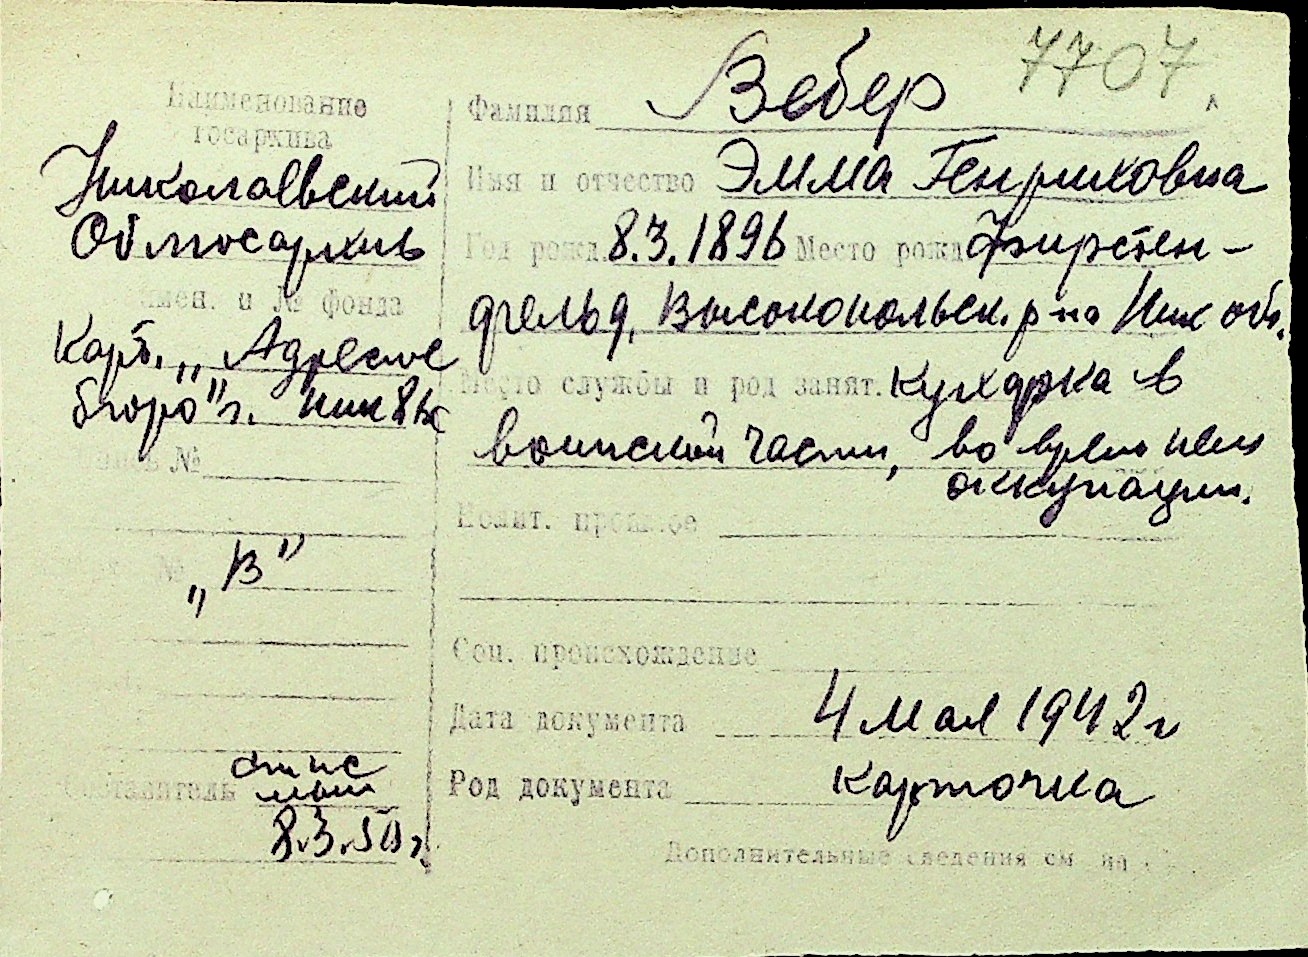 7707.
Наименование
госархива
Николаевский
Облгосархив
наимен. и № фонда
Карт. „Адресное
бюро" г.
Опись №
№
„В"
Составитель
8.3.50 г.
Фамилия Вебер
Имя и отчество Эмма Генриховна
Год рожд. 8.3.1896 Место рожд. Фирстен-
фельд, Высокопольск. р-на Ник обл.
Место службы и род занят. кухарка в
воинской части, во время нем
оккупации.
Полит. прошлое
Соц. происхождение
Дата документа 4 мая 1942 г
Род документа карточка
Дополнительные сведения см на